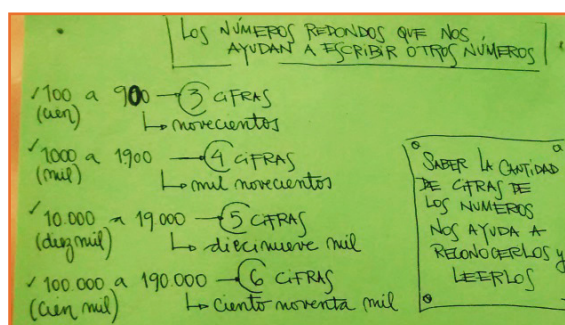 LOS NÚMEROS REDONDOS QUE NOS
AYUDAN A ESCRIBIR OTROS NÚMEROS
✓ 100 a 900 → 3 CIFRAS
(cien) ↳ novecientos
✓ 1000 a 1900 → 4 CIFRAS
(mil) ↳ mil novecientos
✓ 10.000 a 19.000 → 5 CIFRAS
(diez mil) ↳ diecinueve mil
✓ 100.000 a 190.000 → 6 CIFRAS
(cien mil) ↳ ciento noventa mil
SABER LA CANTIDAD
DE CIFRAS DE
LOS NUMEROS
NOS AYUDA A
RECONOCERLOS y
LEERLOS